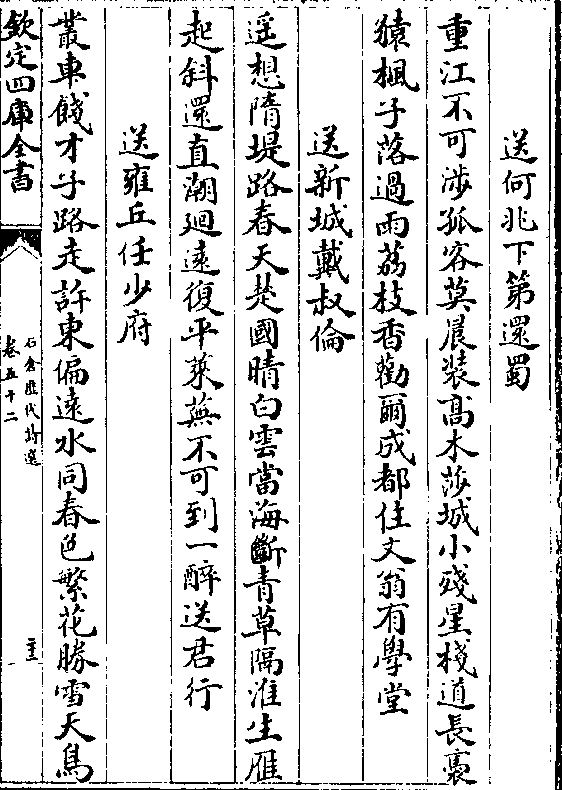 送何兆下第還蜀
重江不可涉孤客莫晨裝髙木莎城小殘星棧道長裹
猿楓子落過雨荔枝香勸爾成都住文翁有學堂
送新城戴叔倫
遥想隋堤路春天楚國晴白雲當海斷青草隔淮生雁
起斜還直潮廻遠復平萊蕪不可到一醉送君行
送雍丘任少府
叢車餞才子路走許東偏遠水同春色繁花勝雪天鳥
欽定四庫全書
石倉歴代詩選
卷五十二